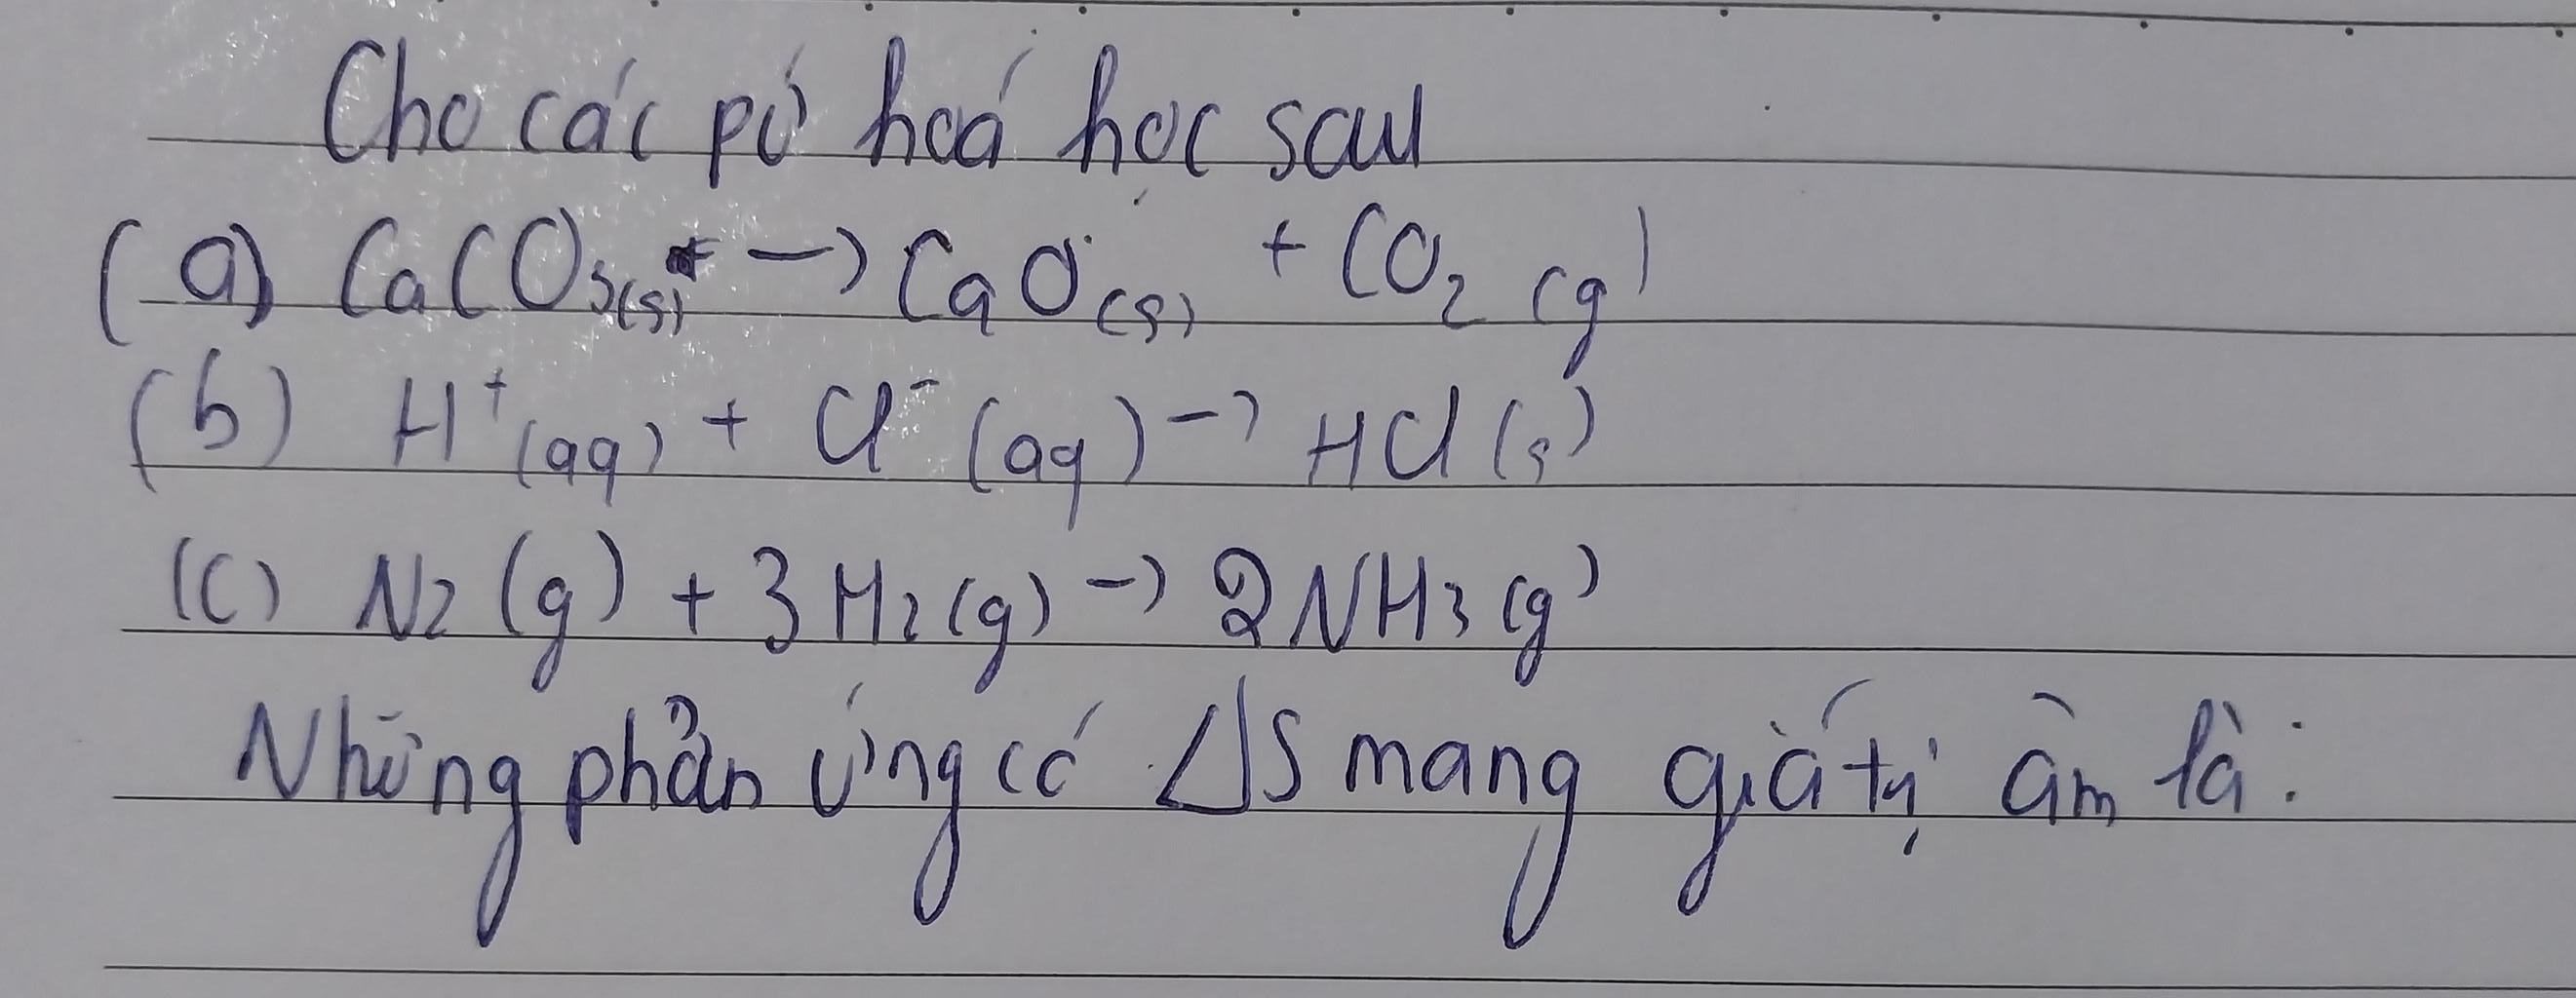 Cho các pứ hoá học sau
(a) CaCO3(s) → CaO(s) + CO2 (g)
(b) H+ (aq) + Cl- (aq) → HCl (s)
(c) N2 (g) + 3H2 (g) → 2NH3 (g)
Những phản ứng có ΔS mang giá tị âm là: